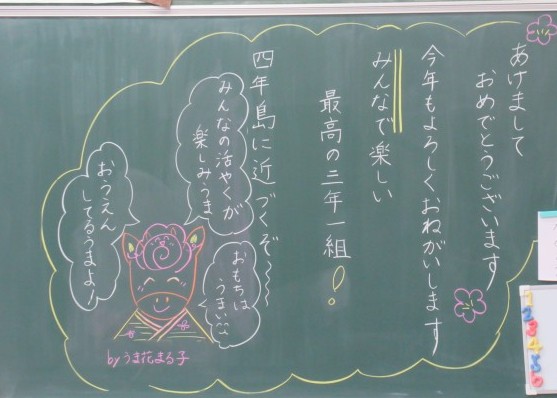 あけまして
おめでとうございます
今年もよろしくおねがいします
みんなで楽しい
最高の三年一組!
四年島に近づくぞ〜〜
みんなの活やくが
楽しみうま
おもちは
うまい
おうえん
してるうまよ!
byうま花まる子
1
2
3
4
5
6